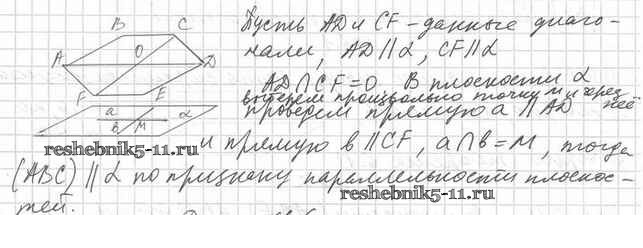 Пусть AD и CF – данные диаго-
нали, AD || α, CF || α
AD ∩ CF = O. В плоскости α
выберем произвольно точку M и через неё
проведем прямую a || AD
и прямую b || CF, a ∩ b = M, тогда
(ABC) || α по признаку параллельности плоскос-
тей.
B C
A O D
F E
a α
b M
reshebnik5-11.ru
reshebnik5-11.ru